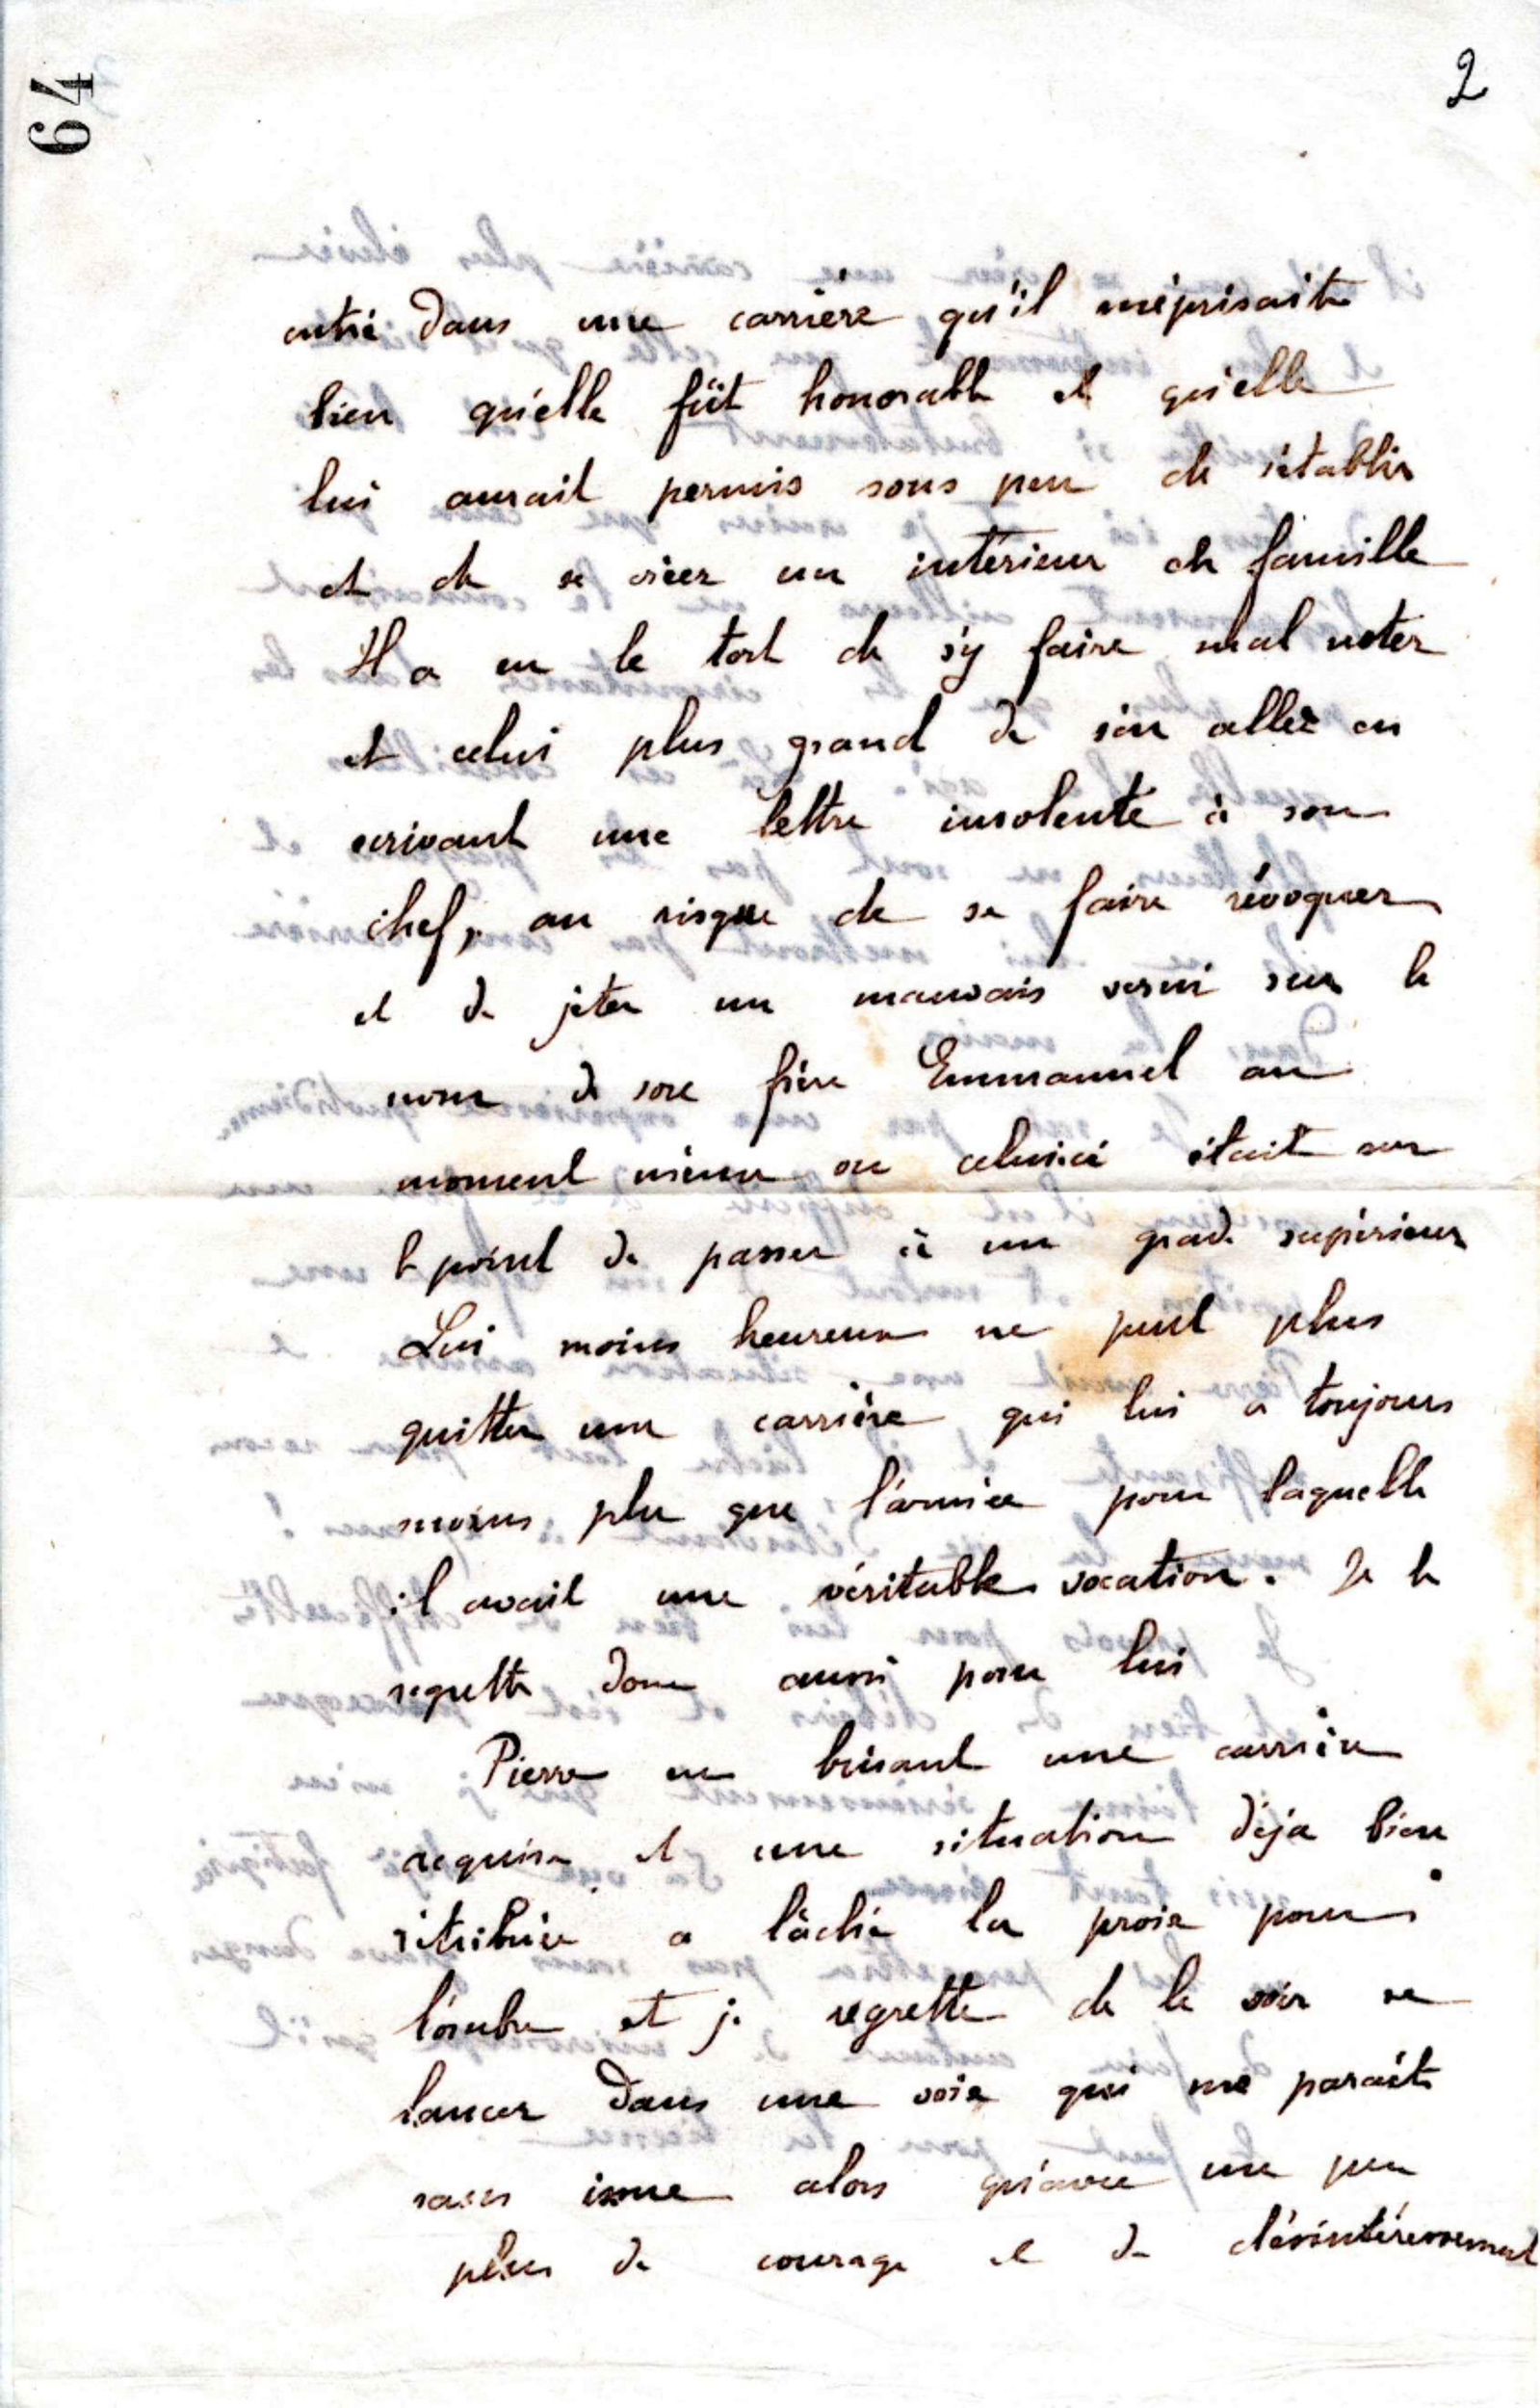 64
2
entré dans une carrière qu'il méprisait
bien qu'elle fût honorable et qu'elle
lui aurait permis sous peu de s'établir
et de se créer un intérieur de famille
Il a eu le tort de s'y faire mal noter
et celui plus grand de s'en aller en
ecrivant une lettre insolente à son
chef, au risque de se faire révoquer
et de jeter un mauvais verni sur le
nom de son frère Emmanuel au
moment même ou celui-ci était sur
le point de passer à un grade supérieur
Lui moins heureux ne peut plus
quitter une carrière qui lui a toujours
moins plu que l'armée pour laquelle
il avait une véritable vocation. Je le
regrette donc aussi pour lui
Pierre en brisant une carrière
acquise et une situation déja bien
rétribuée a lâché la proie pour
l'ombre et je regrette de le voir se
lancer dans une voie qui me parait
sans issue alors qu'avec un peu
plus de courage et de désintéressement